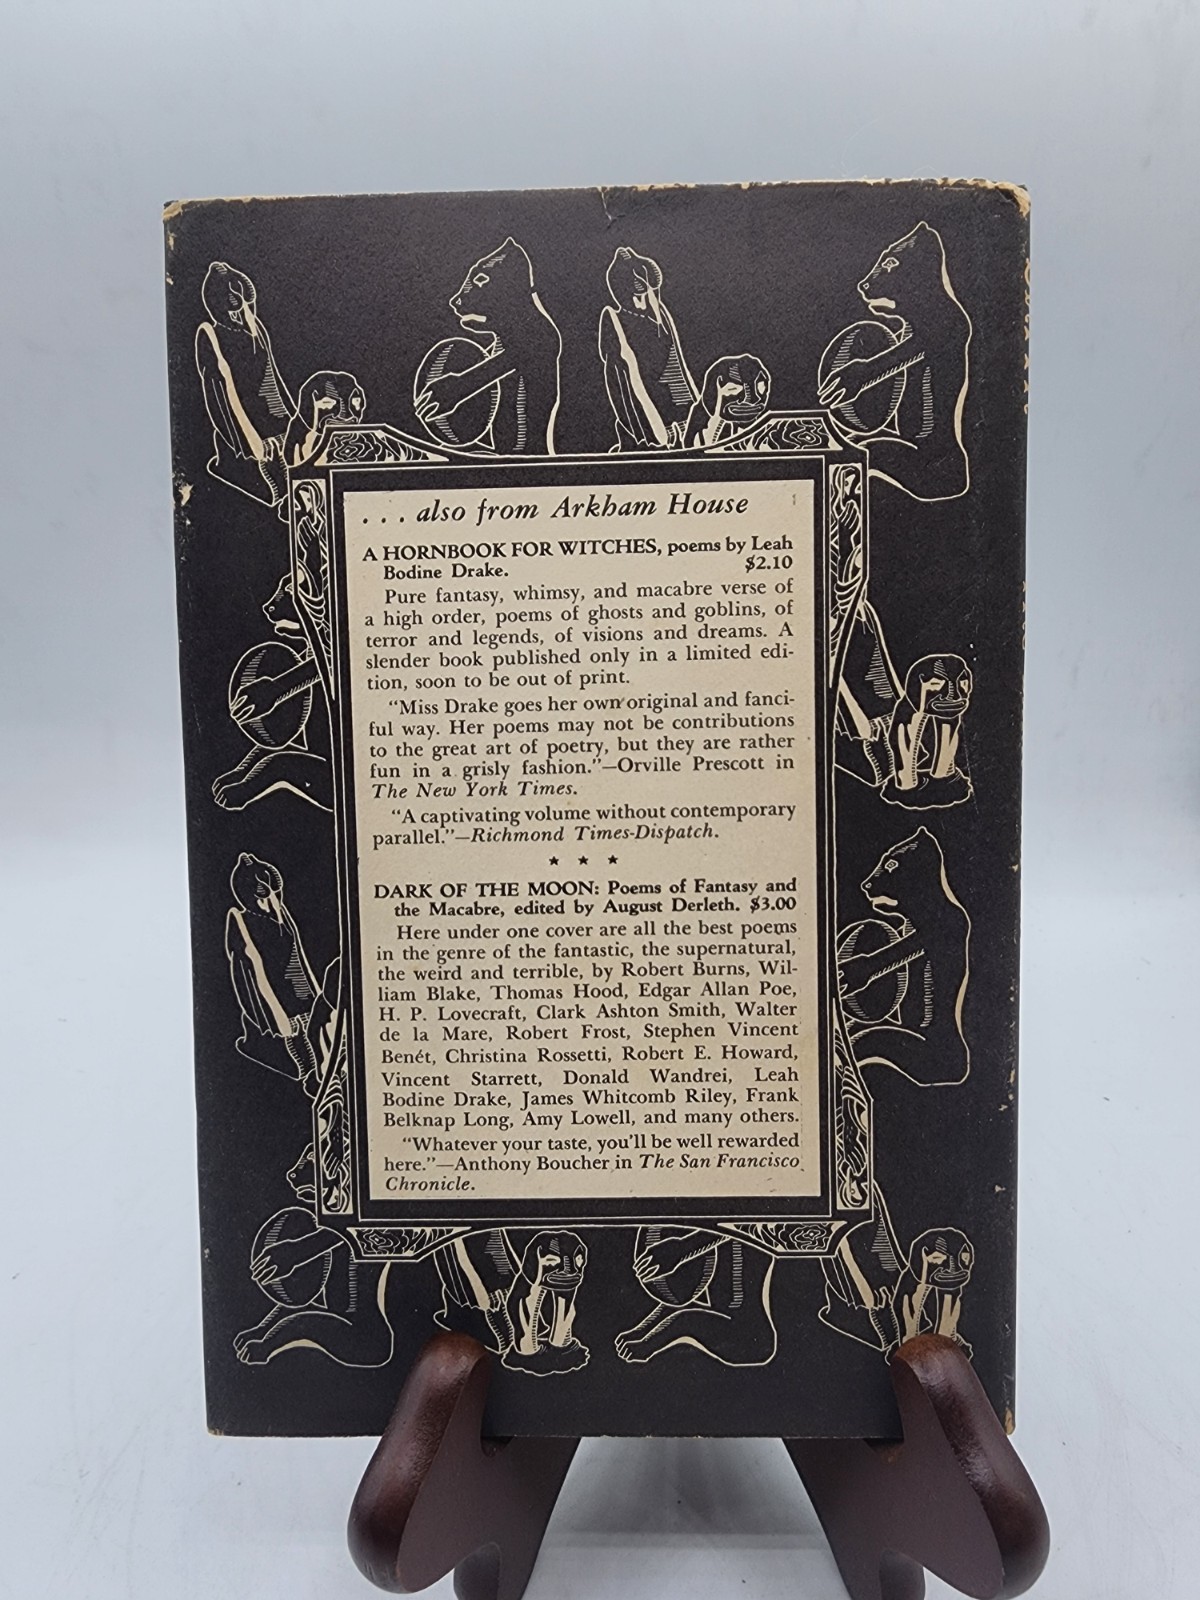 . . . also from Arkham House
A HORNBOOK FOR WITCHES, poems by Leah
Bodine Drake. $2.10
Pure fantasy, whimsy, and macabre verse of
a high order, poems of ghosts and goblins, of
terror and legends, of visions and dreams. A
slender book published only in a limited edi-
tion, soon to be out of print.
"Miss Drake goes her own original and fanci-
ful way. Her poems may not be contributions
to the great art of poetry, but they are rather
fun in a grisly fashion."—Orville Prescott in
The New York Times.
"A captivating volume without contemporary
parallel."—Richmond Times-Dispatch.
★ ★ ★
DARK OF THE MOON: Poems of Fantasy and
the Macabre, edited by August Derleth. $3.00
Here under one cover are all the best poems
in the genre of the fantastic, the supernatural,
the weird and terrible, by Robert Burns, Wil-
liam Blake, Thomas Hood, Edgar Allan Poe,
H. P. Lovecraft, Clark Ashton Smith, Walter
de la Mare, Robert Frost, Stephen Vincent
Benét, Christina Rossetti, Robert E. Howard,
Vincent Starrett, Donald Wandrei, Leah
Bodine Drake, James Whitcomb Riley, Frank
Belknap Long, Amy Lowell, and many others.
"Whatever your taste, you'll be well rewarded
here."—Anthony Boucher in The San Francisco
Chronicle.